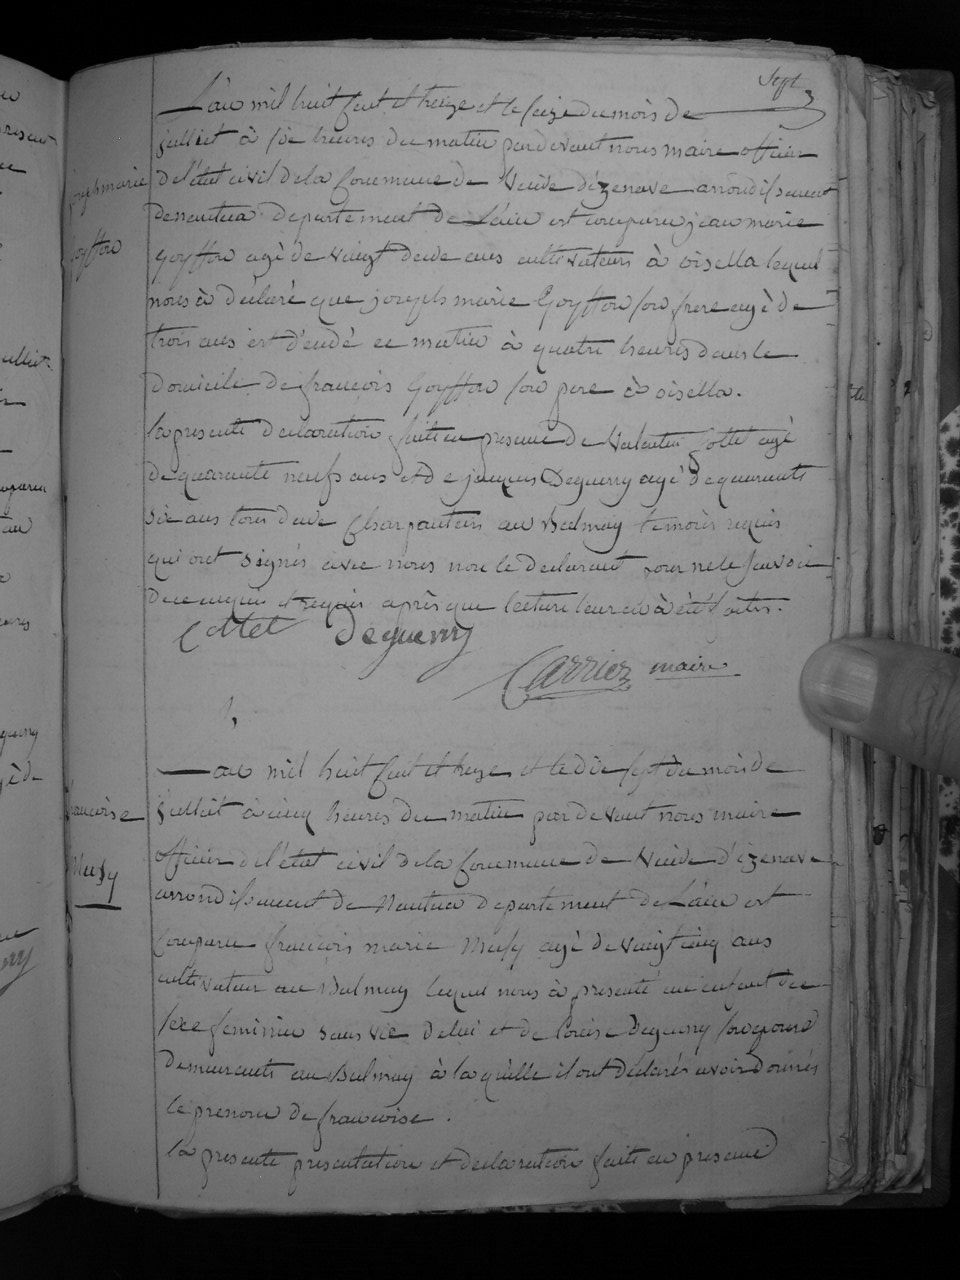 Sept
L'an mil huit cent et treize et le seize du mois de
juillet à six heures du matin pardevant nous maire officier
de l'état civil de la Commune de Vieux d'izenave arrondissement
de nantua departement de L'ain est comparu jean marie
goyffon agè de vingt deux ans cultivateur à oisella lequel
nous à déclaré que joseph marie Goyffon son frere agè de
trois ans est décédé ce matin à quatre heures dans le
domicile de françois Goyffon son pere à oisella.
la presente declaration faite en presence de Valentin Cottet agé
de quarante neuf ans et de jacques Deguerry agè de quarante
six ans tous deux Charpentiers au Balmay temoins requis
qui ont signés avec nous non le declarant pour ne le savoir
de ce enquis et requis après que lecture leur en à été faite.
Cottet Deguerry
Carrier maire
joseph marie
goyffon
L'an mil huit cent et treize et le dix sept du mois de
juillet à cinq heures du matin pardevant nous maire
officier de l'état civil de la Commune de Vieux d'izenave
arrondissement de Nantua departement de L'ain est
comparu françois marie Musy agé de vingt cinq ans
cultivateur au Balmay lequel nous à presenté un enfant du
sexe feminin sans vie de lui et de Louise Deguerry son epouse
demeurants au Balmay à laquelle il ont déclarés avoir donnés
le prenom de françoise.
la presente presentation et declaration faite en presence
françoise
Musy